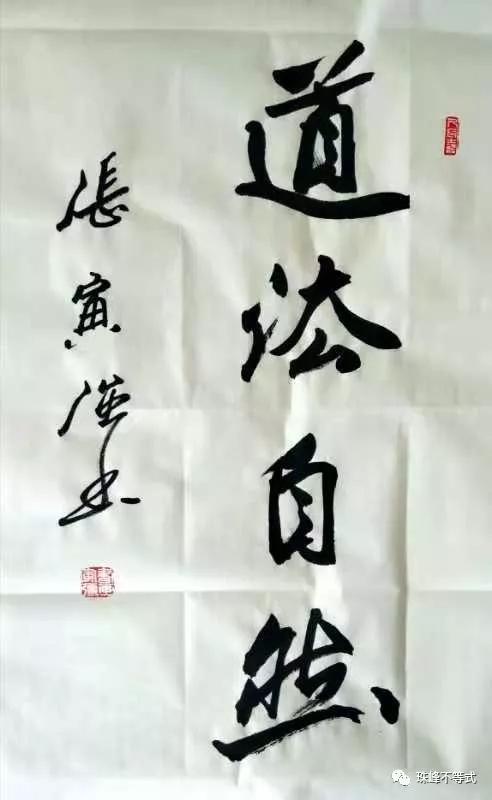 道法自然
張寅强书
珠峰不等式